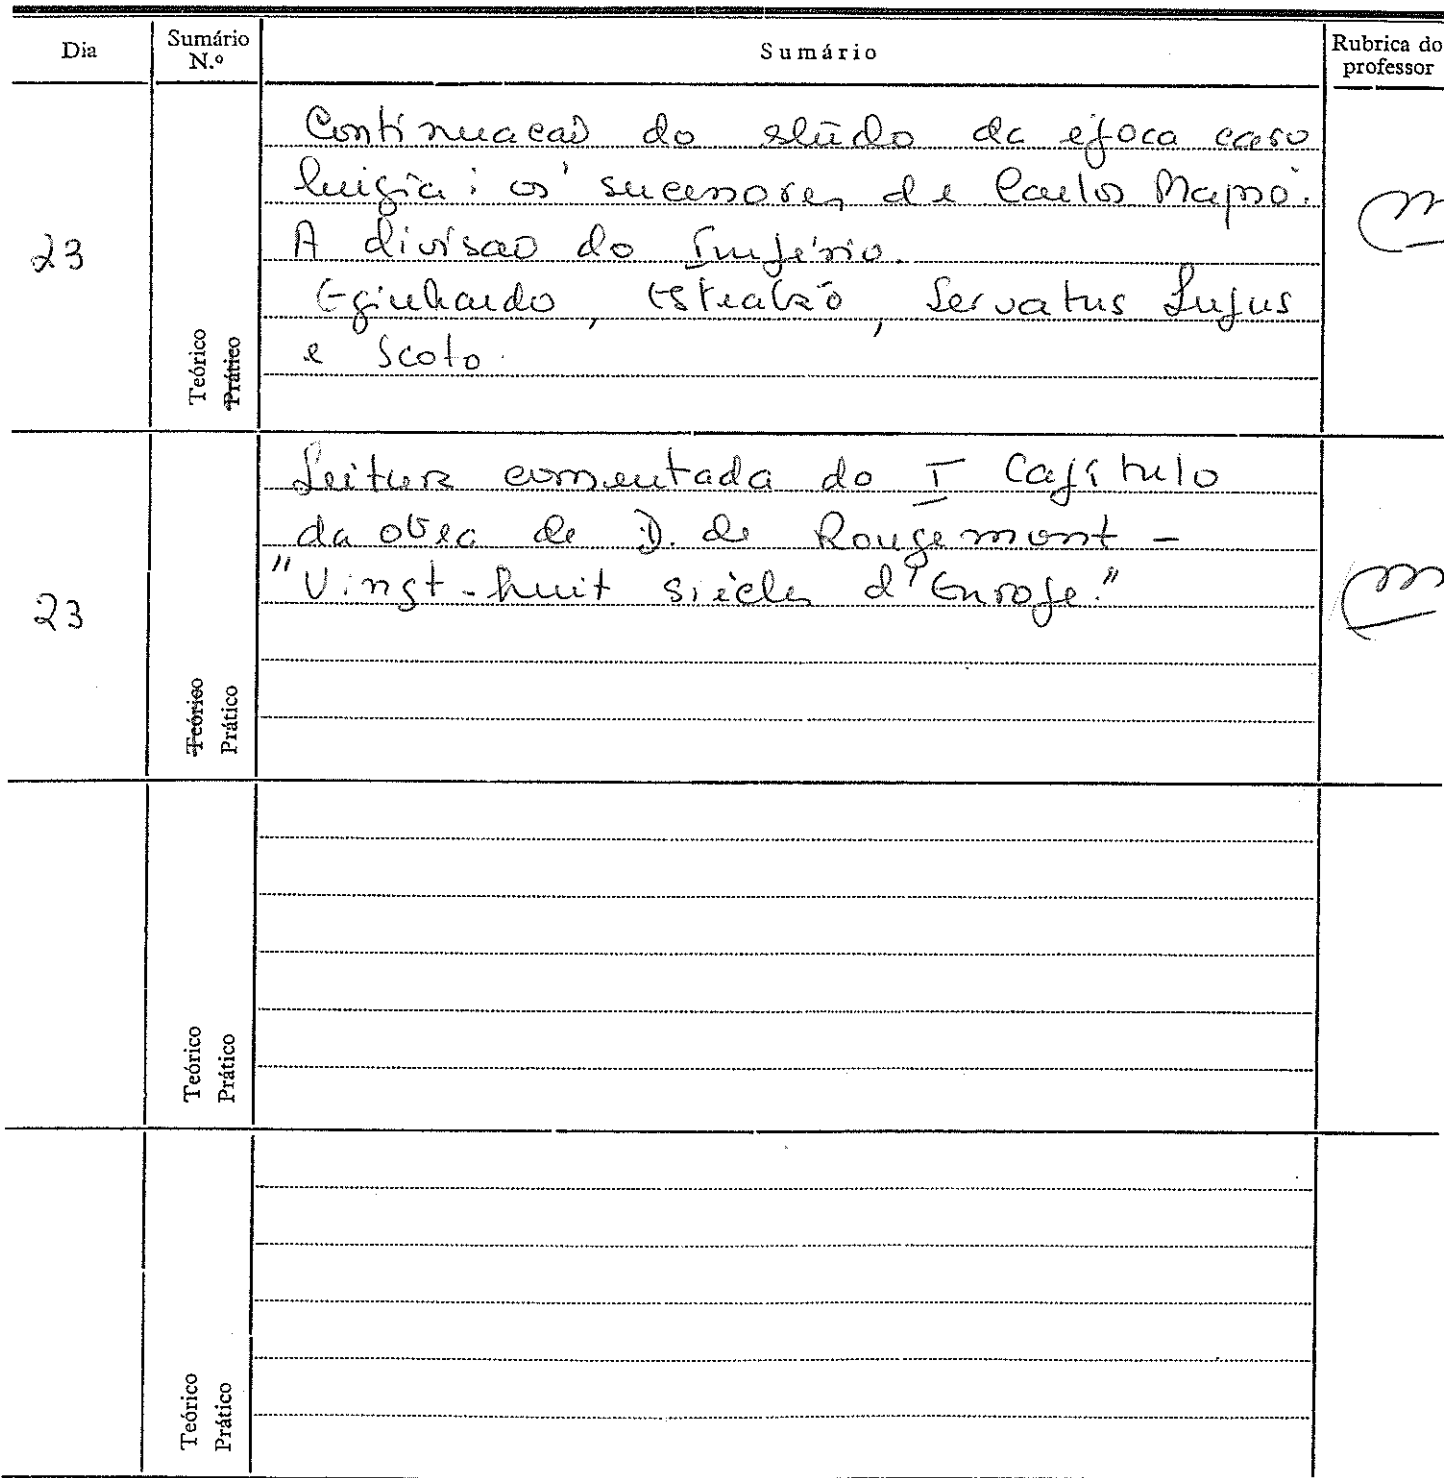 Dia
Sumário N.º
Sumário
Rubrica do professor
23
Teórico
Prático
Continuação do estudo da época caro
língia: os sucessores de Carlos Magno.
A divisão do Império.
Eginhardo, Estrabão, Servatus Lupus
e Scoto.
23
Teórico
Prático
Leitura comentada do I Capítulo
da obra de D. de Rougemont -
"Vingt-huit siècles d'Europe."
Teórico
Prático
Teórico
Prático